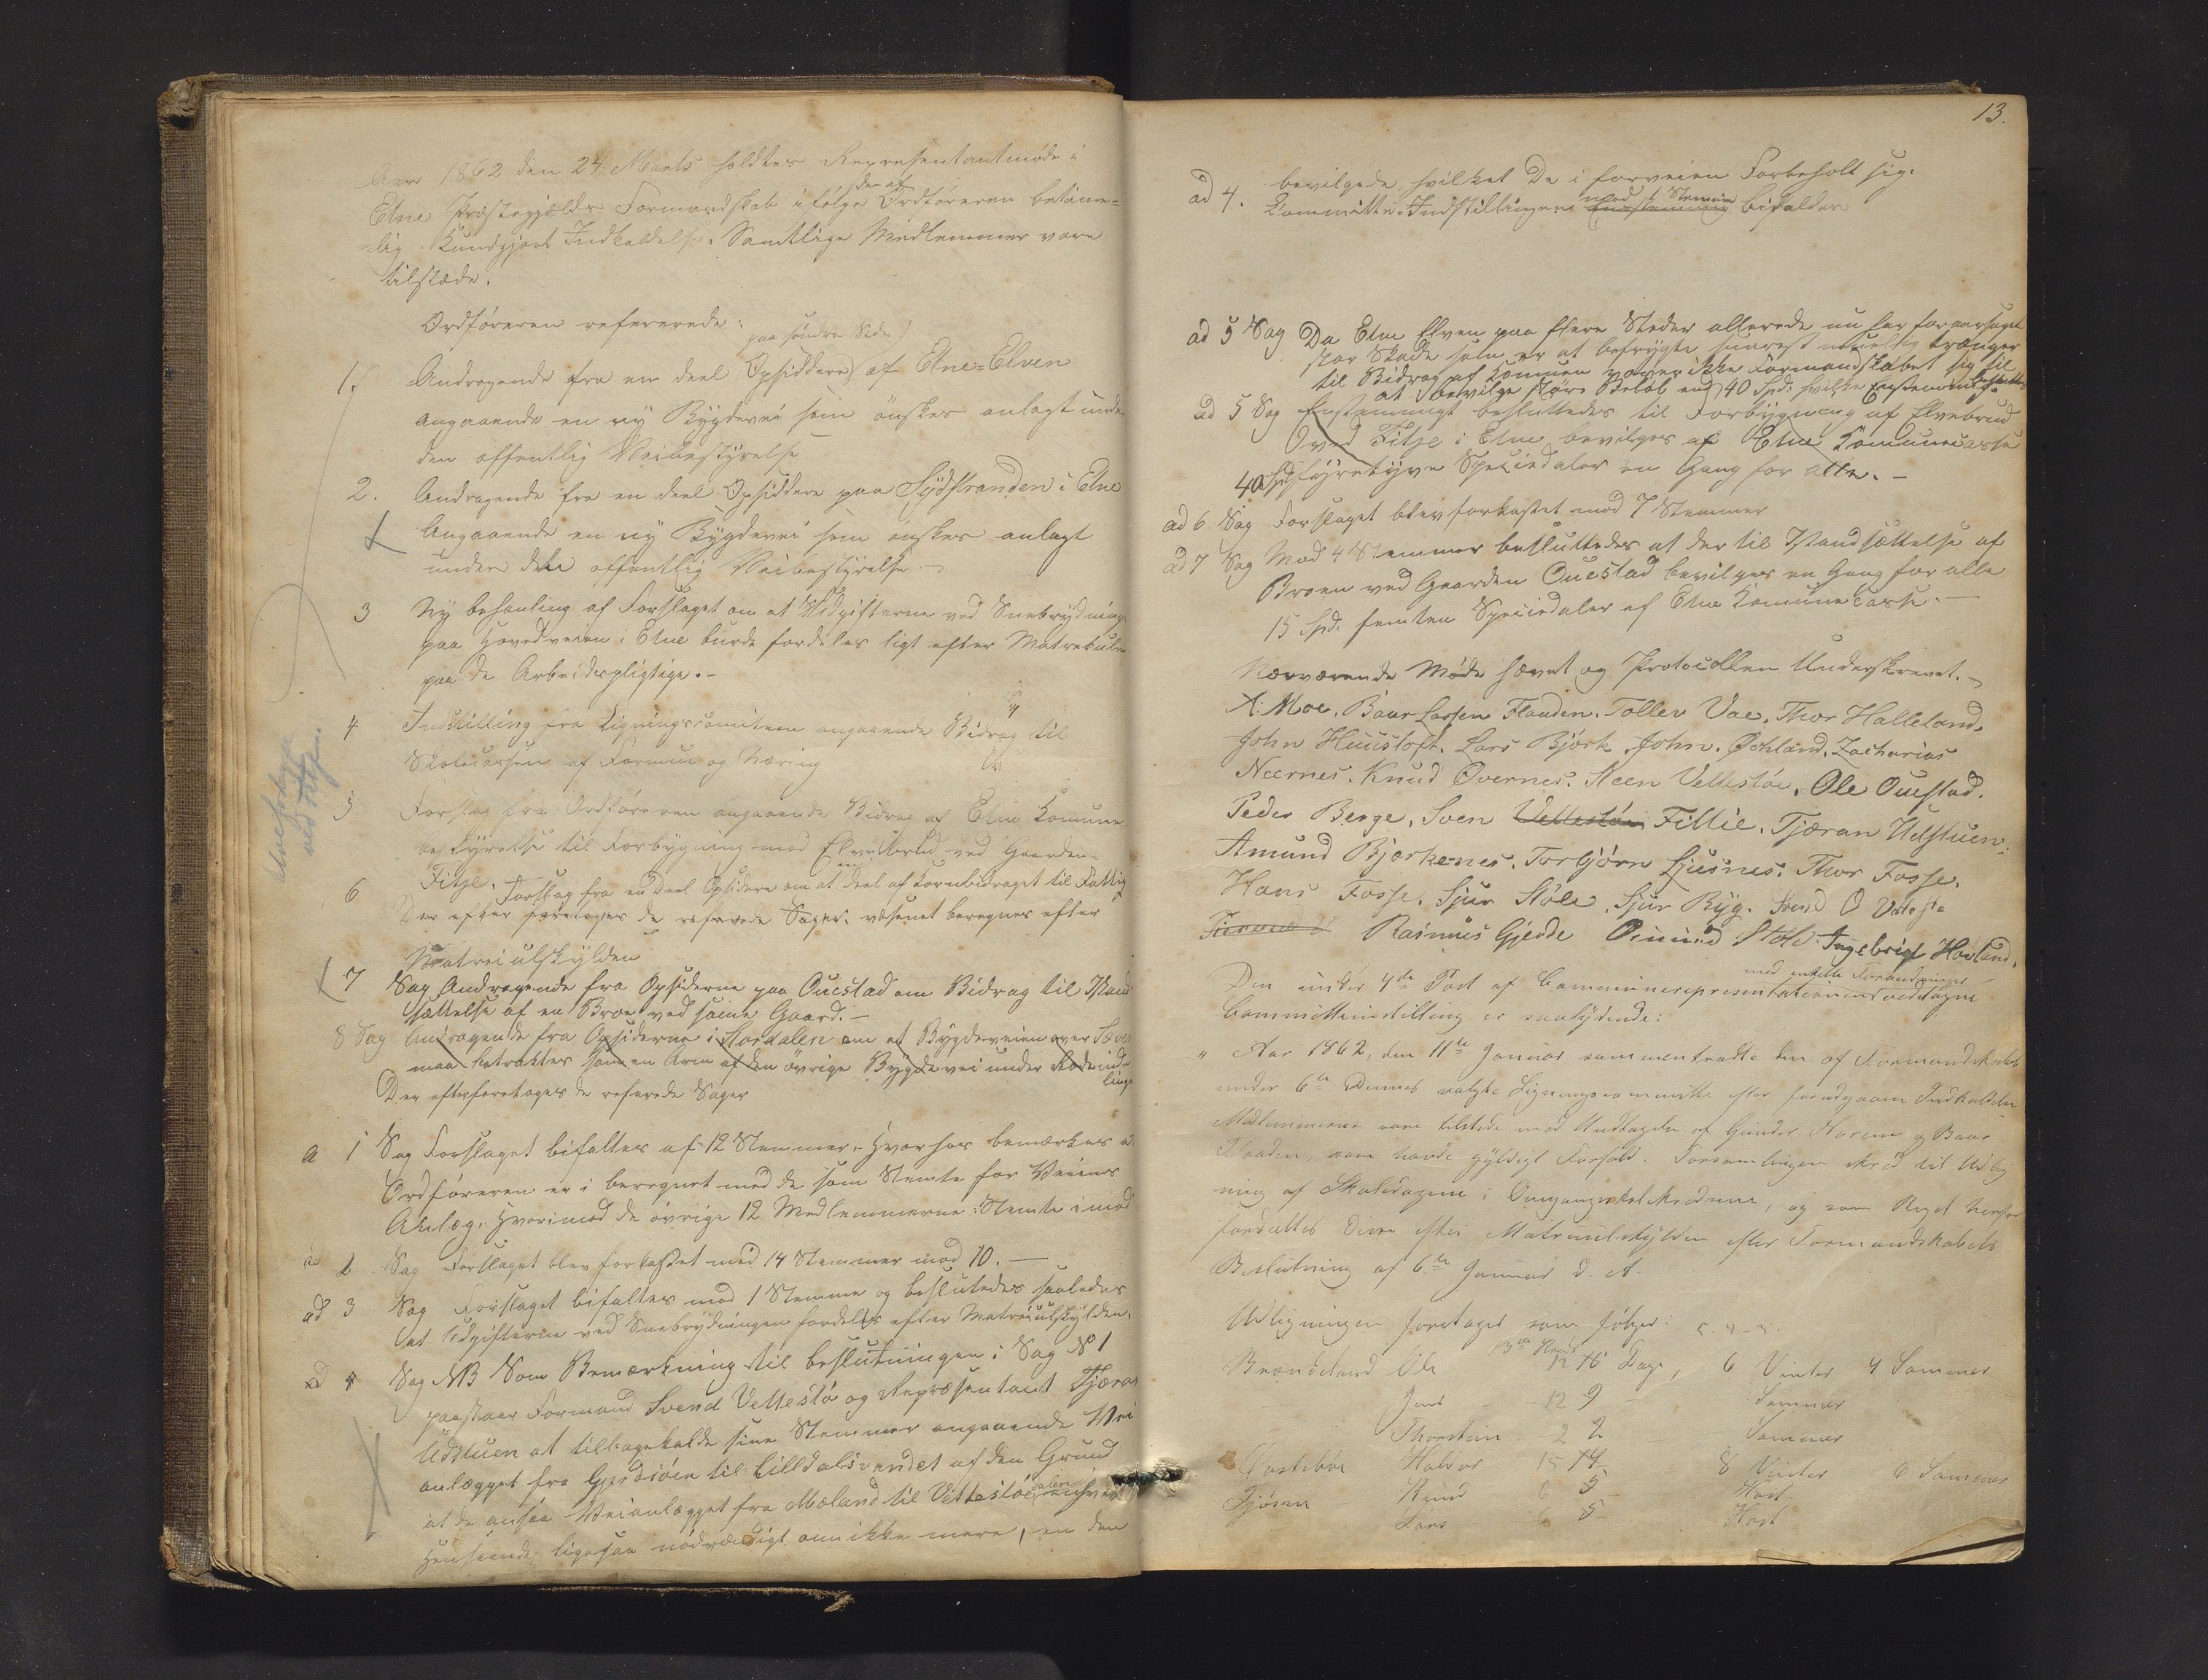 Aar 1862 den 24 Marts holdtes Repræsentantmøde i
Etne Præstegjælds Formandskab ifølge den af Ordføreren betime-
-lig Kundgjort Indkaldelse. Samtlige Medlemmer vare
tilstæde.
Ordføreren refererede:
paa søndre Side
1. Andragende fra en deel Opsiddere af Etne-Elven
angaaende en ny Bygdevei som ønskes anlagt under
den offentlig Veibestyrelse
2. Andragende fra en deel Opsiddere paa Sydstranden i Etne
Angaaende en ny Bygdevei som ønskes anlagt
under den offentlig Veibestyrelse
3 Ny behanling af Forslaget om at Udgifterne ved Snebrydning
paa Hovedveien i Etne burde fordeles ligt efter Matrekulen
paa de Arbeidspligtige.-
4 Indstilling fra Ligningscomiteen angaaende Bidrag til
Skolecassen af Formue og Næring
5 Forslag fra Ordføreren angaaende Bidrag af Etne Komune
bestyrelse til Forbygning mod Elvebrud ved Gaarden
Fitje.
6 Forslag fra en Deel Opsidere om at en deel af Kornbidraget til Fattig
Der efter foretages de refererede Sager. væsenet beregnes efter
Matriculskylden
7 Sag Andragende fra Opsiderne paa Ouestad om Bidrag til Istand
sættelse af en Broe ved samme Gaard.-
8 Sag Andragende fra Opsiderne i Stordalen om at Bygdeveien over
maa betraktes som en Arm af den øvrige Bygdevei under Rodeindde
linge
Der efter foretages de refererede Sager
a 1 Sag Forslaget bifaltes af 12 Stemmer. Hvorhos bemærkes at
Ordføreren er i beregnet med de som Stemte for Veiens
Anlæg. Hvorimod de øvrige 12 Medlemmerne Stemte imod
ad 2 Sag Forslaget blev forkastet med 14 Stemmer mod 10.-
ad 3 Sag Forslaget bifaltes mod 1 Stemme og beslutedes saaledes
at Udgifterne ved Snebrydningen fordeles efter Matriculskylden.
ad 4 Sag NB Som Bemærkning til beslutningen i Sag No 1
paastaar Formand Svend Vettestø og Repræsentant Tjæran
Udstuen at tilbagekalde sine Stemmer angaaende Vei
anlægget fra Gjerdsiøen til Lilldalsvandet af den Grund
at de ansaa Veianlægget fra Mæland til Vettestøe i enhver
Henseende ligesaa nødvændigt om ikke mere, en den
Elveforbygn
ved Fitje.
13.
bevilgede hvilket De i forveien Forbeholt sig.
ad 4. Committe-Indstillingen mod 1 Stemme bifaldes
ad 5 Sag Da Etne Elven paa flere Steder allerede nu har foraarsaget
stor Skade som er at befrygte snarest muelig trænger
til Bidrag af Komunen vover ikke Formandskabet sig til
at bevilge større Beløb end 40 Spd. hvilke Enstemmig besluttes
ad 5 Sag Enstemmigt besluttedes til Forbygning af Elvebrud
ved Fitje i Etne bevilges af Etne Komunecasse
40 Spd fyretyve Speciedaler en Gang for alle.-
ad 6 Sag Forslaget blev forkastet mod 7 Stemmer
ad 7 Sag Mod 4 Stemmer besluttedes at der til Istandsættelse af
Broen ved Gaarden Ouestad bevilges en Gang for alle
15 Spd. femten Speciedaler af Etne Komunecasse.-
Nærværende Møde hævet og Protocollen Underskrevet.-
A. Moe. Baar Larsen Flaaden. Tollev Vae. Thor Halleland.
John Huusloft. Lars Bjørk. John. Øchland. Zacharias
Neernes. Knud Øvernes. Steen Vettestøe. Ole Ouestad.
Peder Berge. Sven Vettestøe Fittie. Tjæran Udstuen.
Amund Bjørkenes. Torbjørn Ljusnes. Thor Fosse.
Hans Fosse. Sjur Støle. Sjur Ryg. Svend O Vettestø
Rasmus Gjerde Omund Støle. Ingebrigt Hovland.
med enkelte Forandringer
Den under 4de Post af Communerepresentationen vedtagne
Committeindstilling er saalydende:
" Aar 1862, den 11te Januar sammentraadte den af Formandskabet
under 6te Dennes valgte Ligningscommitte efter forudgaaen Indkaldelse
Medlemmerne vare tilstede med Undtagelse af Gunder Hareim og Baar
Flaaden, som havde gyldigt Forfald. Forsamlingen skred til Udlig-
ning af Skoledagene i Omgangsskolekredsene, og som Regel herfor
fordeeltes disse efter Matriculskylden efter Formandskabets
Beslutning af 6te Januar d. A.
Udligningen foretages som følger:
Brændeland Ole 12 16 Dage, 6 Vinter 4 Sommer
Jens 12 9 - Sommer
Thorstein 2 2 Sommer
Østebøe Haldor 15 14 8 Vinter 6 Sommer
Knud 6 5 Høst
Lars 6 5 Høst